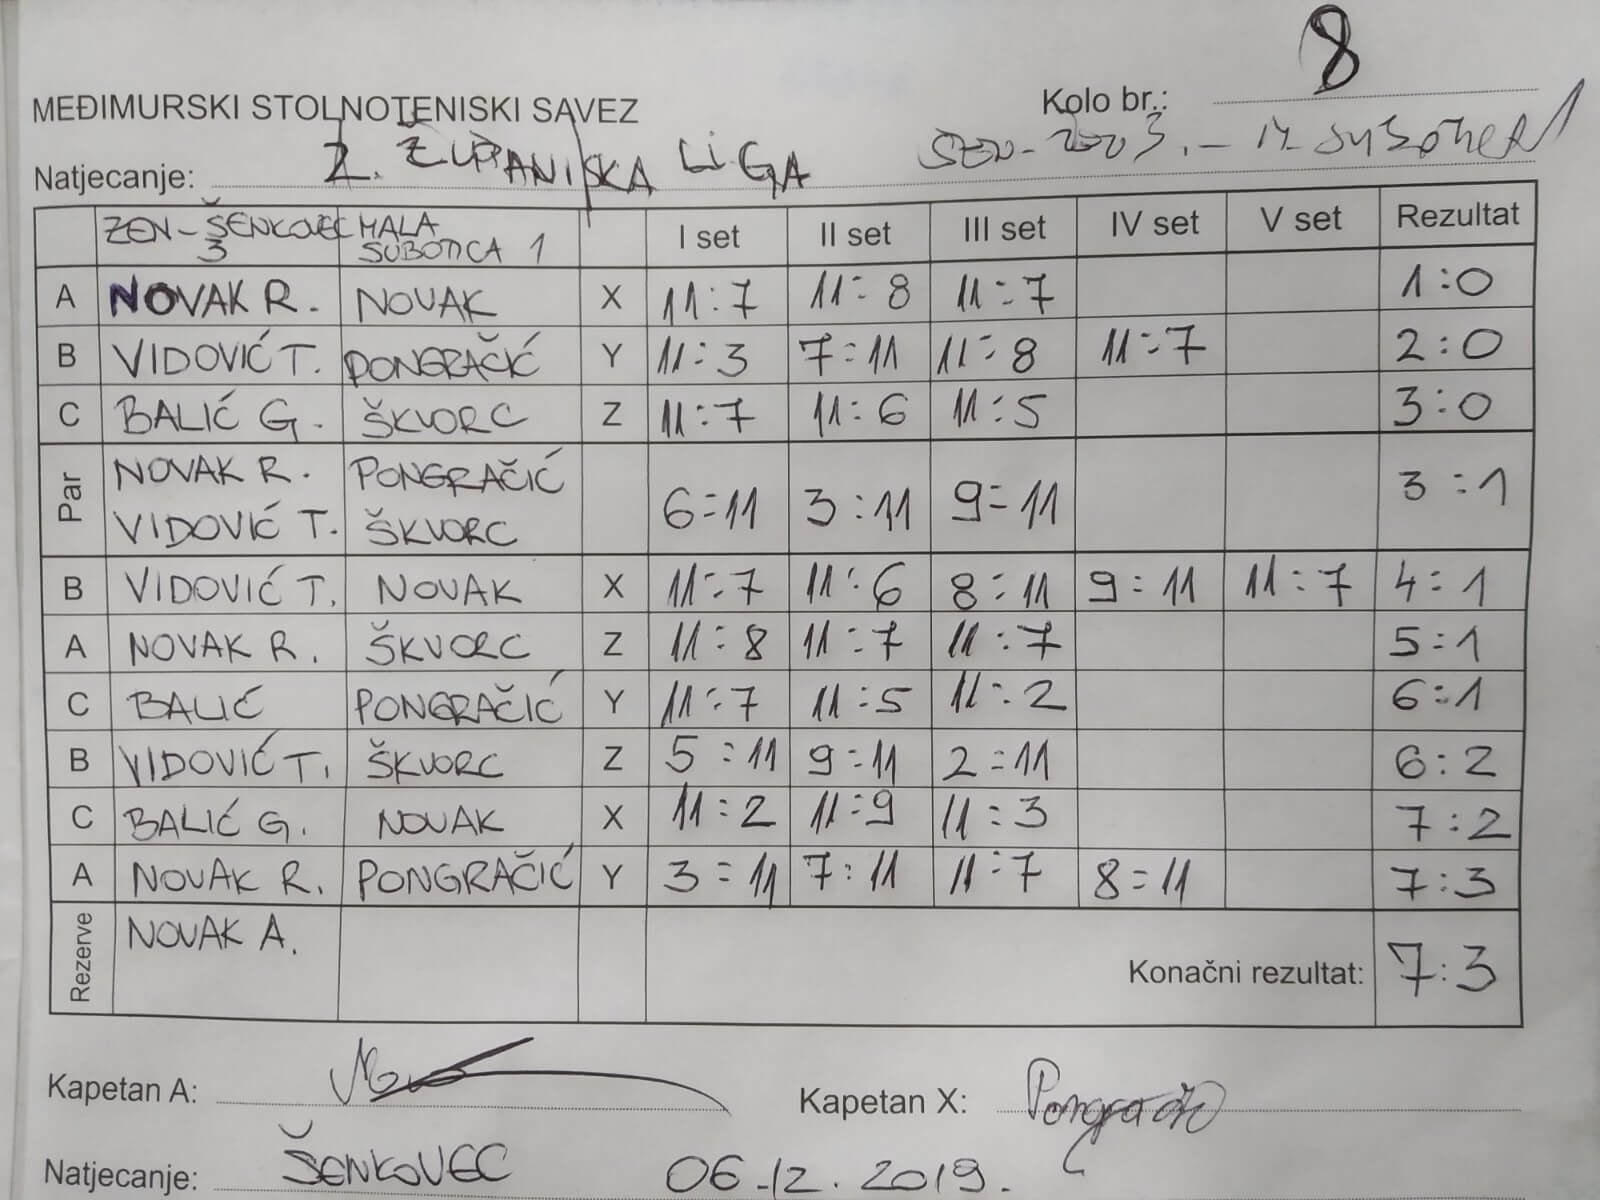 8
MEĐIMURSKI STOLNOTENISKI SAVEZ Kolo br.:
Natjecanje: 2. ŽUPANIJSKA LIGA
ZEN-ŠENKOVEC 3 MALA SUBOTICA 1 I set II set III set IV set V set Rezultat
A NOVAK R. NOVAK X 11:7 11:8 11:7 1:0
B VIDOVIĆ T. PONGRAČIĆ Y 11:3 7:11 11:8 11:7 2:0
C BALIĆ G. ŠKVORC Z 11:7 11:6 11:5 3:0
Par NOVAK R. PONGRAČIĆ 6:11 3:11 9:11 3:1
VIDOVIĆ T. ŠKVORC
B VIDOVIĆ T. NOVAK X 11:7 11:6 8:11 9:11 11:7 4:1
A NOVAK R. ŠKVORC Z 11:8 11:7 11:7 5:1
C BALIĆ PONGRAČIĆ Y 11:7 11:5 11:2 6:1
B VIDOVIĆ T. ŠKVORC Z 5:11 9:11 2:11 6:2
C BALIĆ G. NOVAK X 11:2 11:9 11:3 7:2
A NOVAK R. PONGRAČIĆ Y 3:11 7:11 11:7 8:11 7:3
Rezerve NOVAK A. Konačni rezultat: 7:3
Kapetan A: Kapetan X: Pongračić
Natjecanje: ŠENKOVEC 06.12.2019.